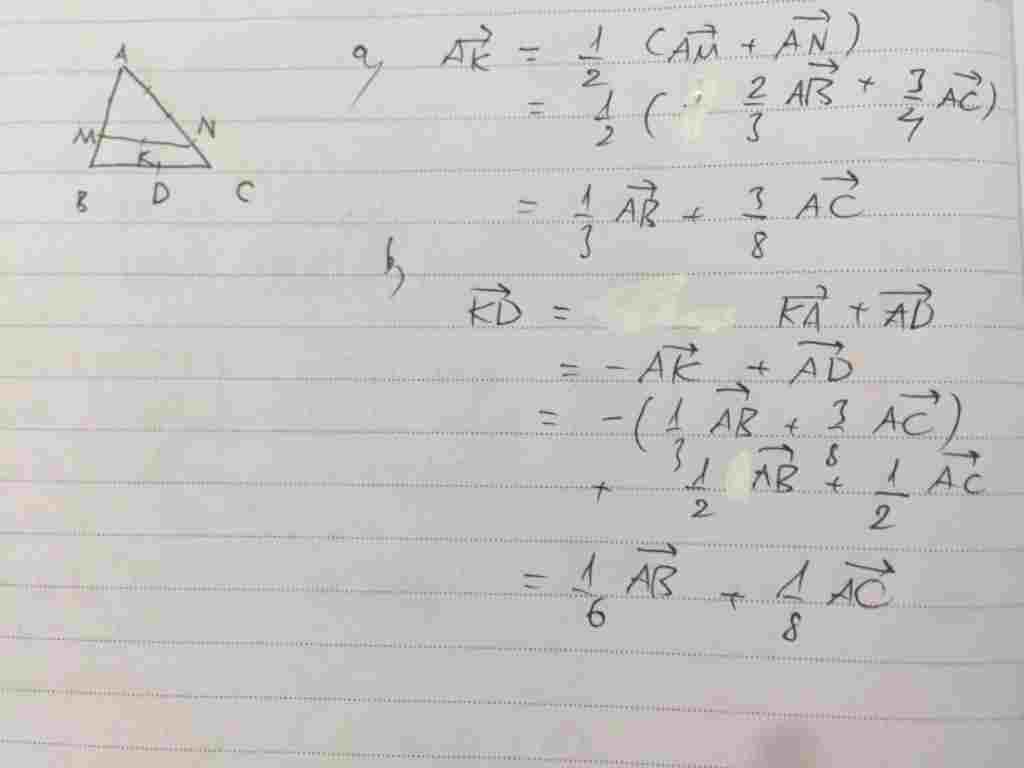 A
M N
K
B D C
a, $\overrightarrow{AK} = \frac{1}{2} (\overrightarrow{AM} + \overrightarrow{AN})$
$= \frac{1}{2} ( \frac{2}{3} \overrightarrow{AB} + \frac{3}{4} \overrightarrow{AC})$
$= \frac{1}{3} \overrightarrow{AB} + \frac{3}{8} \overrightarrow{AC}$
b,
$\overrightarrow{KD} = \overrightarrow{KA} + \overrightarrow{AD}$
$= -\overrightarrow{AK} + \overrightarrow{AD}$
$= -(\frac{1}{3} \overrightarrow{AB} + \frac{3}{8} \overrightarrow{AC})$
$+ \frac{1}{2} \overrightarrow{AB} + \frac{1}{2} \overrightarrow{AC}$
$= \frac{1}{6} \overrightarrow{AB} + \frac{1}{8} \overrightarrow{AC}$